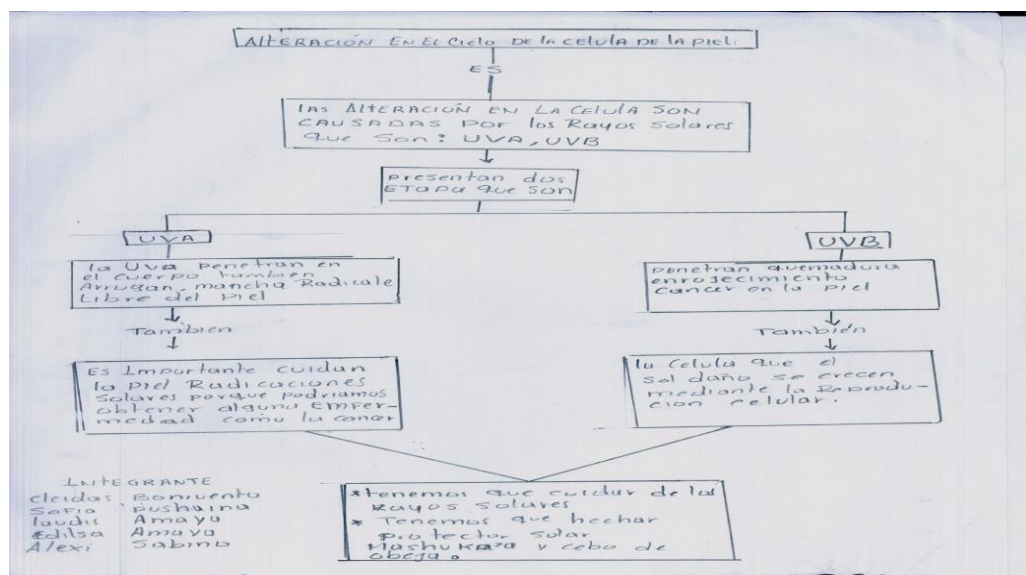 AltERACIÓN EN El Ciclo DE la celula DE la piel.
ES
las AltERACIÓN EN LA CElulA SON
CAUSADAS por los Rayos Solares
que son: UVA, UVB
presentan dos
ETapa que son
UVA
la Uva penetran en
el cuerpo tambien
Arrugan, mancha Radicale
Libre del piel
Tambien
Es Importante cuidan
la piel Radicaciones
Solares porque podriamos
obtener alguna Emfer-
medad como la cancer
UVB
penetran quemadura
enrojecimiento
cancer en la piel
También
la celula que el
sol daño se crecen
mediante la Reprodu-
cion celular.
*tenemos que cuidar de los
Rayos solares
* Tenemos que hechar
protector solar
y cebo de
obeja.
INTEGRANTE
cleidas Bonivento
Sofia Pushaina
laudis Amaya
Edilsa Amaya
Alexi Sabino